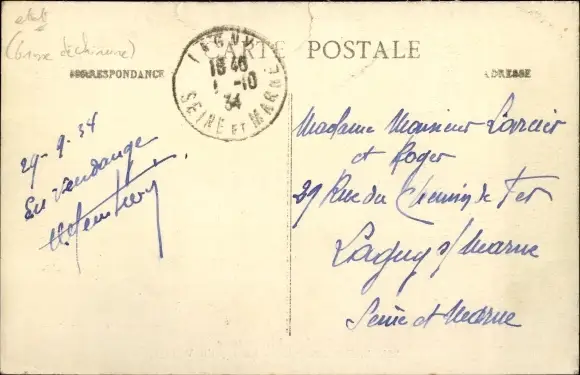 CARTE POSTALE
CORRESPONDANCE
ADRESSE
LAGNY
18 40
1 -10
34
SEINE ET MARNE
29-9-34
En vendange
Madame Monsieur
et Roger
29 Rue du Chemin de Fer
Lagny s/ Marne
Seine et Marne